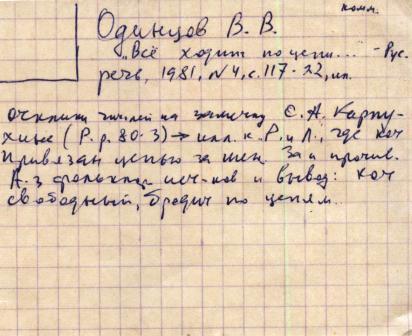 комм.
Одинцов В. В.
„Всё ходит по цепи... – Рус.
речь, 1981, N4, с. 117-22, ил.
отклики читат-лей на заметку С. А. Карпу-
хина (Р. р. 80-3) → илл. к Р. и Л., где кот
привязан цепью за шею. За и против.
А-з фолькл. ист-ков и вывод: кот
свободный, бродит по цепям.